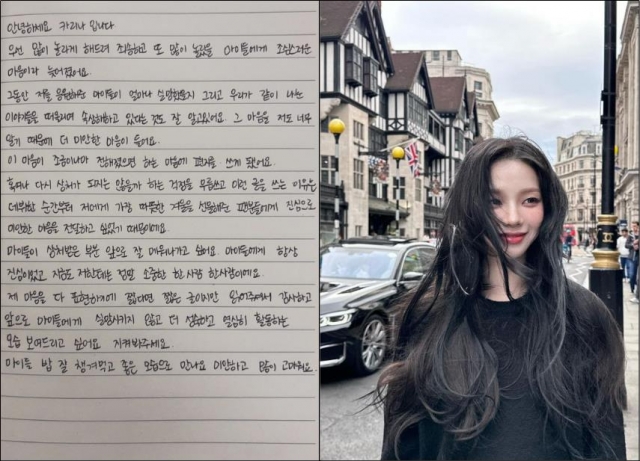 안녕하세요 카리나 입니다
우선 많이 놀라게 해드려 죄송하고 또 많이 놀랐을 마이들에게 조심스러운
마음이라 늦어졌어요.
그동안 저를 응원해준 마이들이 얼마나 실망했을지 그리고 우리가 같이 나눈
이야기들을 떠올리며 속상해하고 있다는 것도 잘 알고있어요. 그 마음을 저도 너무
알기 때문에 더 미안한 마음이 들어요.
이 마음이 조금이나마 전해졌으면 하는 마음에 편지를 쓰게 됐어요.
혹여나 다시 상처가 되지는 않을까 하는 걱정을 무릅쓰고 이런 글을 쓰는 이유는
데뷔한 순간부터 저에게 가장 따뜻한 겨울을 선물해준 팬분들에게 진심으로
미안한 마음을 전달하고 싶었기 때문이에요.
마이들이 상처받은 부분 앞으로 잘 메워나가고 싶어요. 마이들에게 항상
진심이었고 지금도 저한테는 정말 소중한 한 사람 한사람이에요.
제 마음을 다 표현하기에 짧다면 짧은 글이지만 읽어주셔서 감사하고
앞으로 마이들에게 실망시키지 않고 더 성숙하고 열심히 활동하는
모습 보여드리고 싶어요 지켜봐주세요
마이들 밥 잘 챙겨먹고 좋은 모습으로 만나요 미안하고 많이 고마워요.